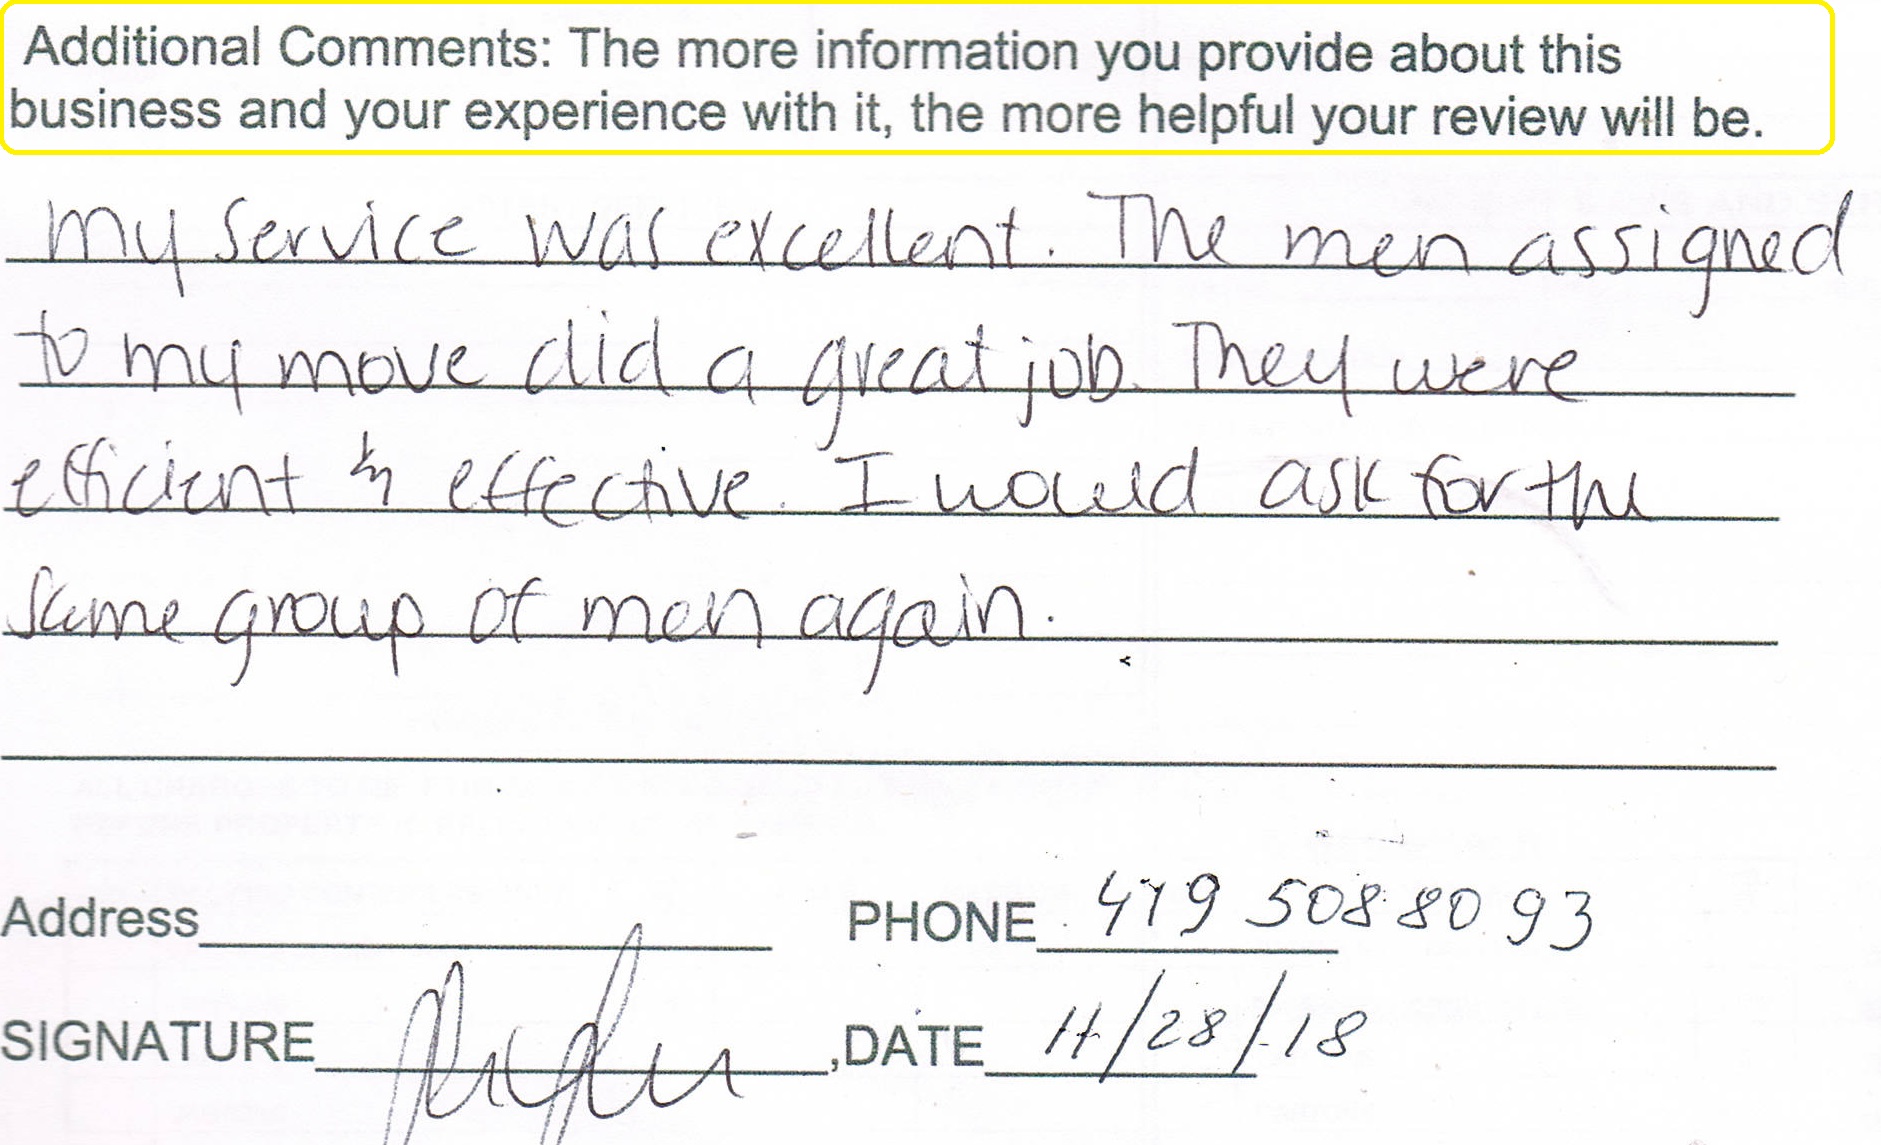 Additional Comments: The more information you provide about this
business and your experience with it, the more helpful your review will be.
My service was excellent. The men assigned
to my move did a great job. They were
efficient & effective. I would ask for the
same group of men again.
Address PHONE 419 508 8093
SIGNATURE ,DATE 11/28/18